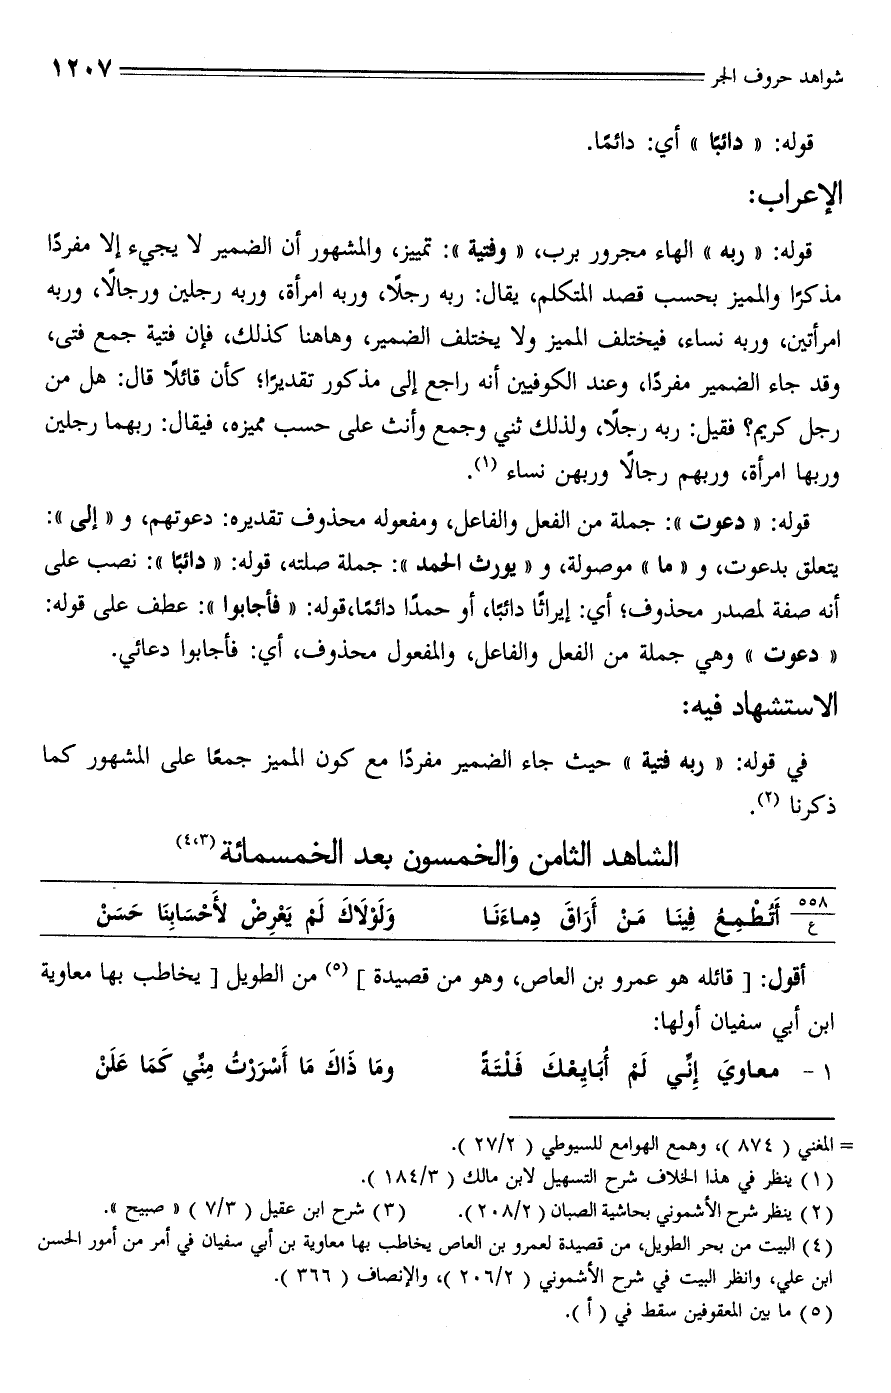 شواهد حروف الجر ١٢٠٧
قوله: « دائبًا » أي: دائمًا.
الإعراب:
قوله: « ربه » الهاء مجرور برب، « وفتية »: تمييز، والمشهور أن الضمير لا يجيء إلا مفردًا
مذكرًا والمميز بحسب قصد المتكلم، يقال: ربه رجلًا، وربه امرأة، وربه رجلين ورجالًا، وربه
امرأتين، وربه نساء، فيختلف المميز ولا يختلف الضمير، وهاهنا كذلك، فإن فتية جمع فتى،
وقد جاء الضمير مفردًا، وعند الكوفيين أنه راجع إلى مذكور تقديرًا؛ كأن قائلًا قال: هل من
رجل كريم؟ فقيل: ربه رجلًا، ولذلك ثني وجمع وأنث على حسب مميزه، فيقال: ربهما رجلين
وربها امرأة، وربهم رجالًا وربهن نساء (١).
قوله: « دعوت »: جملة من الفعل والفاعل، ومفعوله محذوف تقديره: دعوتهم، و « إلى »:
يتعلق بدعوت، و « ما » موصولة، و « يورث الحمد »: جملة صلته، قوله: « دائبًا »: نصب على
أنه صفة لمصدر محذوف؛ أي: إيراثًا دائبًا، أو حمدًا دائمًا،قوله: « فأجابوا »: عطف على قوله:
« دعوت » وهي جملة من الفعل والفاعل، والمفعول محذوف، أي: فأجابوا دعائي.
الاستشهاد فيه:
في قوله: « ربه فتية » حيث جاء الضمير مفردًا مع كون المميز جمعًا على المشهور كما
ذكرنا (٢).
الشاهد الثامن والخمسون بعد الخمسمائة (٣،٤)
٥٥٨ ع أَتُطْمِعُ فِينَا مَنْ أَرَاقَ دِماءَنَا وَلَوْلَاكَ لَمْ يَعْرِضْ لأَحْسَابِنَا حَسَنْ
أقول: [ قائله هو عمرو بن العاص، وهو من قصيدة ] (٥) من الطويل [ يخاطب بها معاوية
ابن أبي سفيان أولها:
١ - معاويَ إِنِّي لَمْ أُبَايِعْكَ فَلْتَةً ومَا ذَاكَ مَا أَسْرَرْتُ مِنِّي كَمَا عَلَنْ
= المغني ( ٨٧٤ )، وهمع الهوامع للسيوطي ( ٢٧/٢ ).
(١) ينظر في هذا الخلاف شرح التسهيل لابن مالك ( ١٨٤/٣ ).
(٢) ينظر شرح الأشموني بحاشية الصبان ( ٢٠٨/٢ ). (٣) شرح ابن عقيل ( ٧/٣ ) « صبيح ».
(٤) البيت من بحر الطويل، من قصيدة لعمرو بن العاص يخاطب بها معاوية بن أبي سفيان في أمر من أمور الحسن
ابن علي، وانظر البيت في شرح الأشموني ( ٢٠٦/٢ )، والإنصاف ( ٣٦٦ ).
(٥) ما بين المعقوفين سقط في ( أ ).